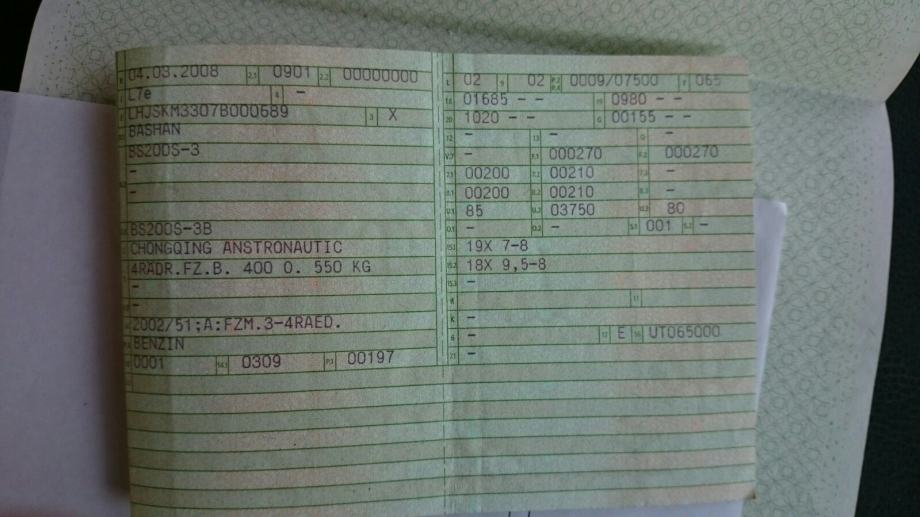 04.03.2008 0901 00000000
L7e -
LHJSKM3307B000689 X
BASHAN
BS200S-3
-
-
BS200S-3B
CHONGQING ANSTRONAUTIC
4RADR.FZ.B. 400 O. 550 KG
-
-
2002/51;A:FZM.3-4RAED.
BENZIN
0001 0309 00197
02 02 0009/07500 065
01685 - - 0980 - -
1020 - - 00155 - -
- - -
- 000270 000270
00200 00210 -
00200 00210 -
85 03750 80
- - 001 -
19X 7-8
18X 9,5-8
-
-
-
- E UT065000
-